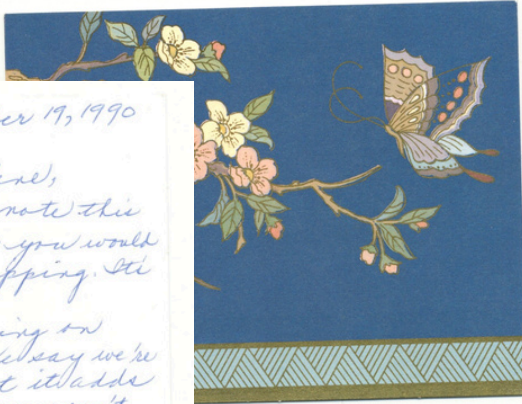 19, 1990
note this
you would
pping. It's
ing on
say we're
t it adds